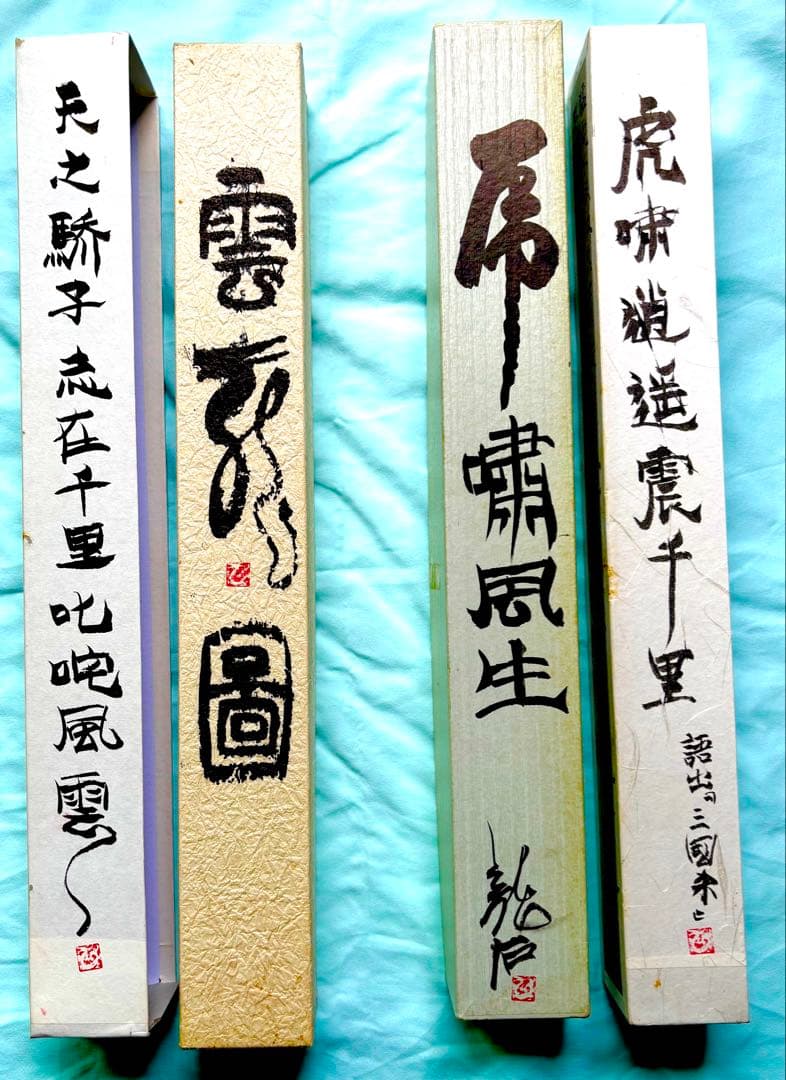 天之驕子志在千里叱咤風雲
雲龍圖
虎嘯風生
虎嘯逍遙震千里
語出三國